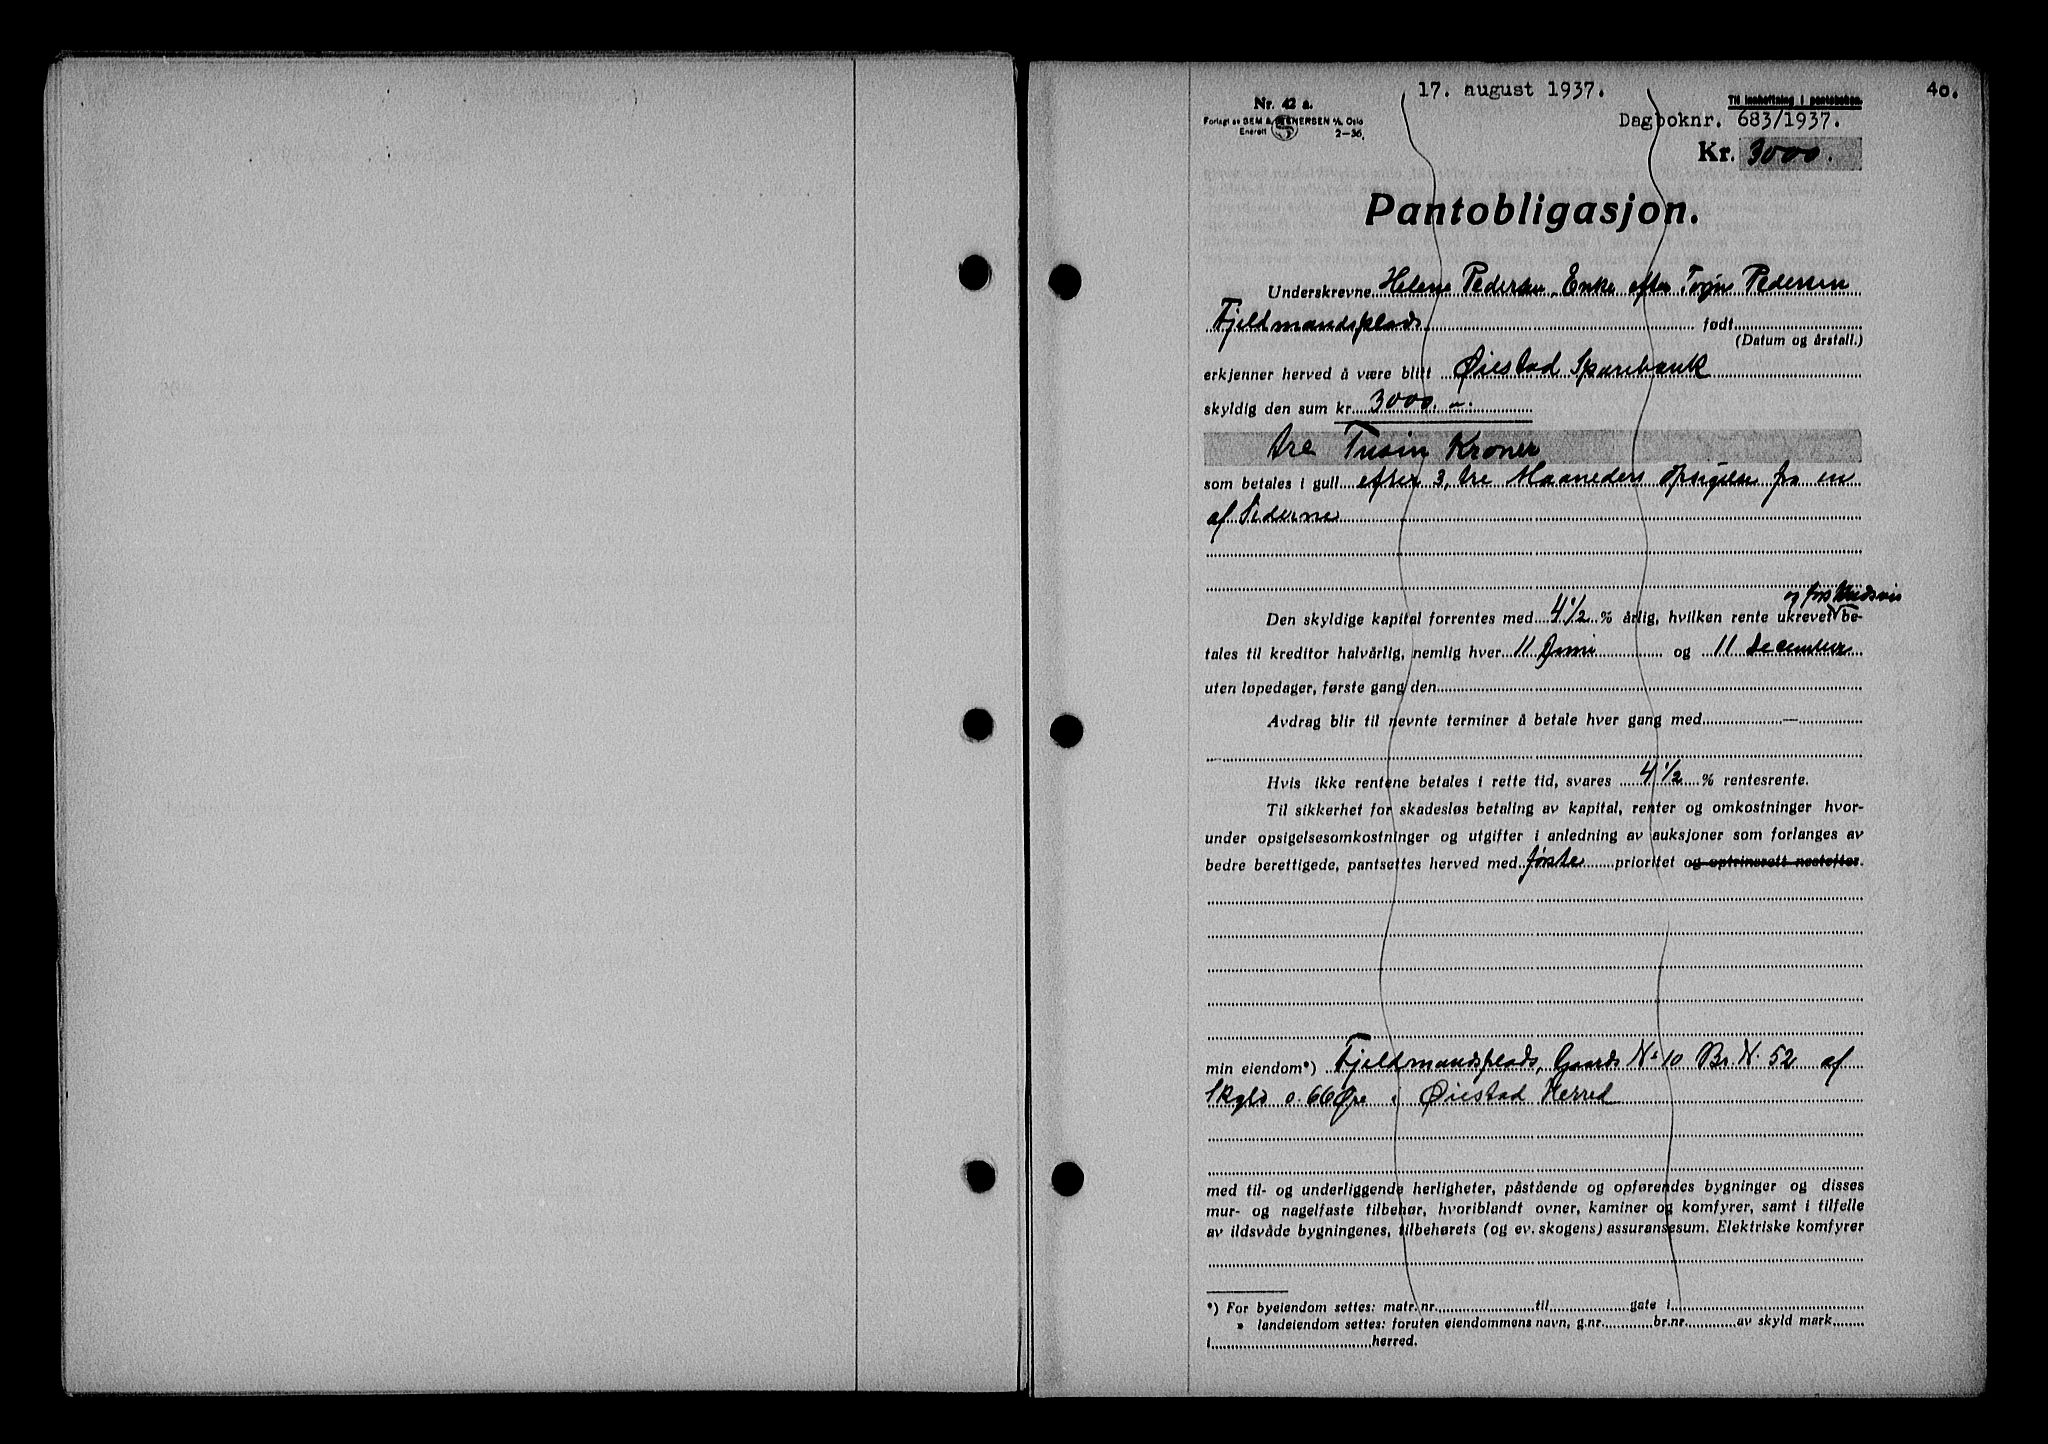 17. august 1937.
40.
Nr. 42 a.
Til innheftning i panteboken.
Forlagt av SEM & STENERSEN A/S, Oslo
Enerett 2-36.
Dagboknr. 683/1937.
Kr. 3000.
Pantobligasjon.
Underskrevne Helene Pedersen, Enke efter Pedersen
Fjeldmandsplads født
(Datum og årstall.)
erkjenner herved å være blitt Øiestad Sparebank
skyldig den sum kr. 3000.-
tre Tusin Kroner
som betales i gull efter 3, tre Maaneders Opsigelse fra en
af Siderne
og forskudsvis
Den skyldige kapital forrentes med 4 1/2 % årlig, hvilken rente ukrevet be-
tales til kreditor halvårlig, nemlig hver 11 Juni og 11 December
uten løpedager, første gang den
Avdrag blir til nevnte terminer å betale hver gang med —
Hvis ikke rentene betales i rette tid, svares 4 1/2 % rentesrente.
Til sikkerhet for skadesløs betaling av kapital, renter og omkostninger hvor-
under opsigelsesomkostninger og utgifter i anledning av auksjoner som forlanges av
bedre berettigede, pantsettes herved med første prioritet og optrinsrett nestefter.
min eiendom*) Fjeldmandsplads, Gaards No 10 Br. N. 52 af
Skyld 0.66 Øre i Øiestad Herred
med til- og underliggende herligheter, påstående og opførendes bygninger og disses
mur- og nagelfaste tilbehør, hvoriblandt ovner, kaminer og komfyrer, samt i tilfelle
av ildsvåde bygningenes, tilbehørets (og ev. skogens) assuransesum. Elektriske komfyrer
*) For byeiendom settes: matr. nr. til gate i
» landeiendom settes: foruten eiendommens navn, g.nr. br.nr. av skyld mark
i herred.